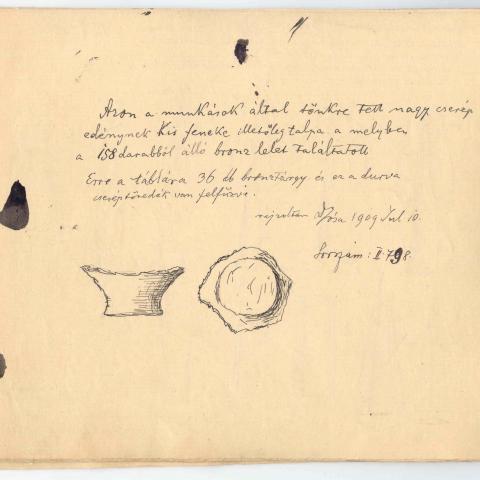 Azon a munkások által tönkre tett nagy cserép
edénynek kis feneke illetőleg talpa a melyben
a 158 darabból álló bronz lelet találtatott
Erre a táblára 36 db bronztárgy és ez a durva
cseréptöredék van felfűzve.
rajzoltam Dósa 1909 Jul 10.
Sorszám: II. 798.